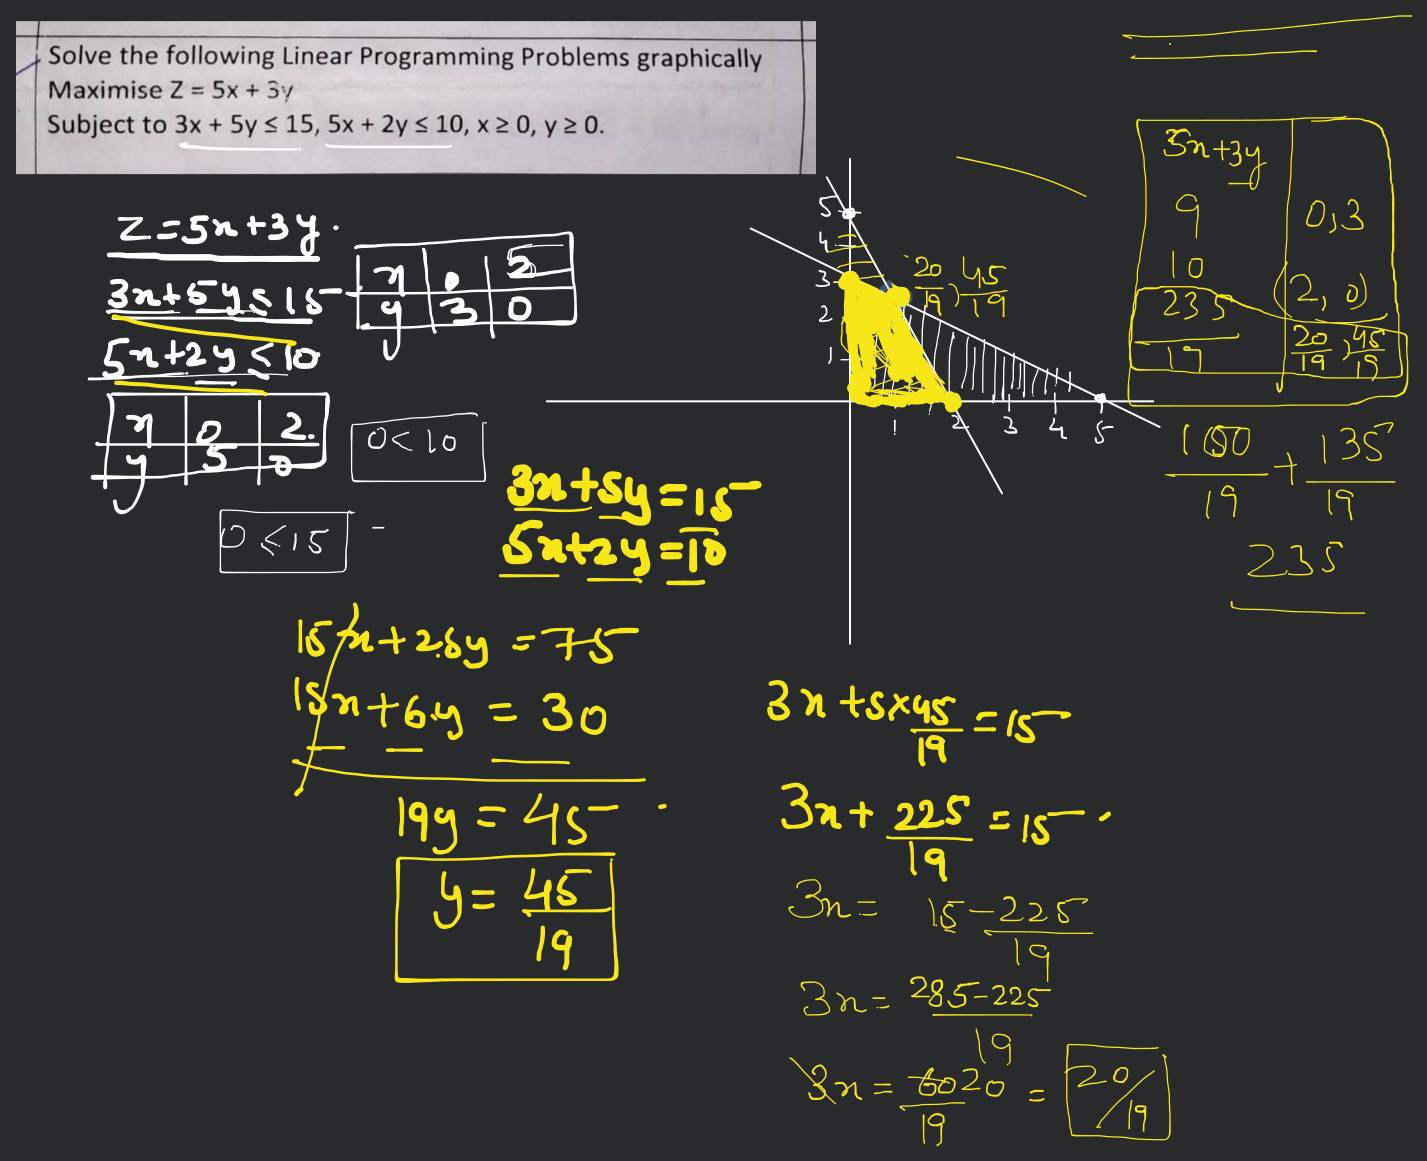 Solve the following Linear Programming Problems graphically
Maximise Z = 5x + 3y
Subject to 3x + 5y ≤ 15, 5x + 2y ≤ 10, x ≥ 0, y ≥ 0.
Z=5x+3y.
3x+5y≤15
x 0 5
y 3 0
5x+2y≤10
x 0 2.
y 5 0
0<10
0<15
3x+5y=15
5x+2y=10
15x+25y=75
15x+6y=30
19y=45
y=45/19
5
4
3
2
1
1 2 3 4 5
20/19, 45/19
5x+3y
9 0,3
10 (2,0)
235/19 20/19, 45/19
100/19 + 135/19
235
3x+5×45/19=15
3x+225/19=15
3x=15-225/19
3x=285-225/19
3x=60 20/19=20/19